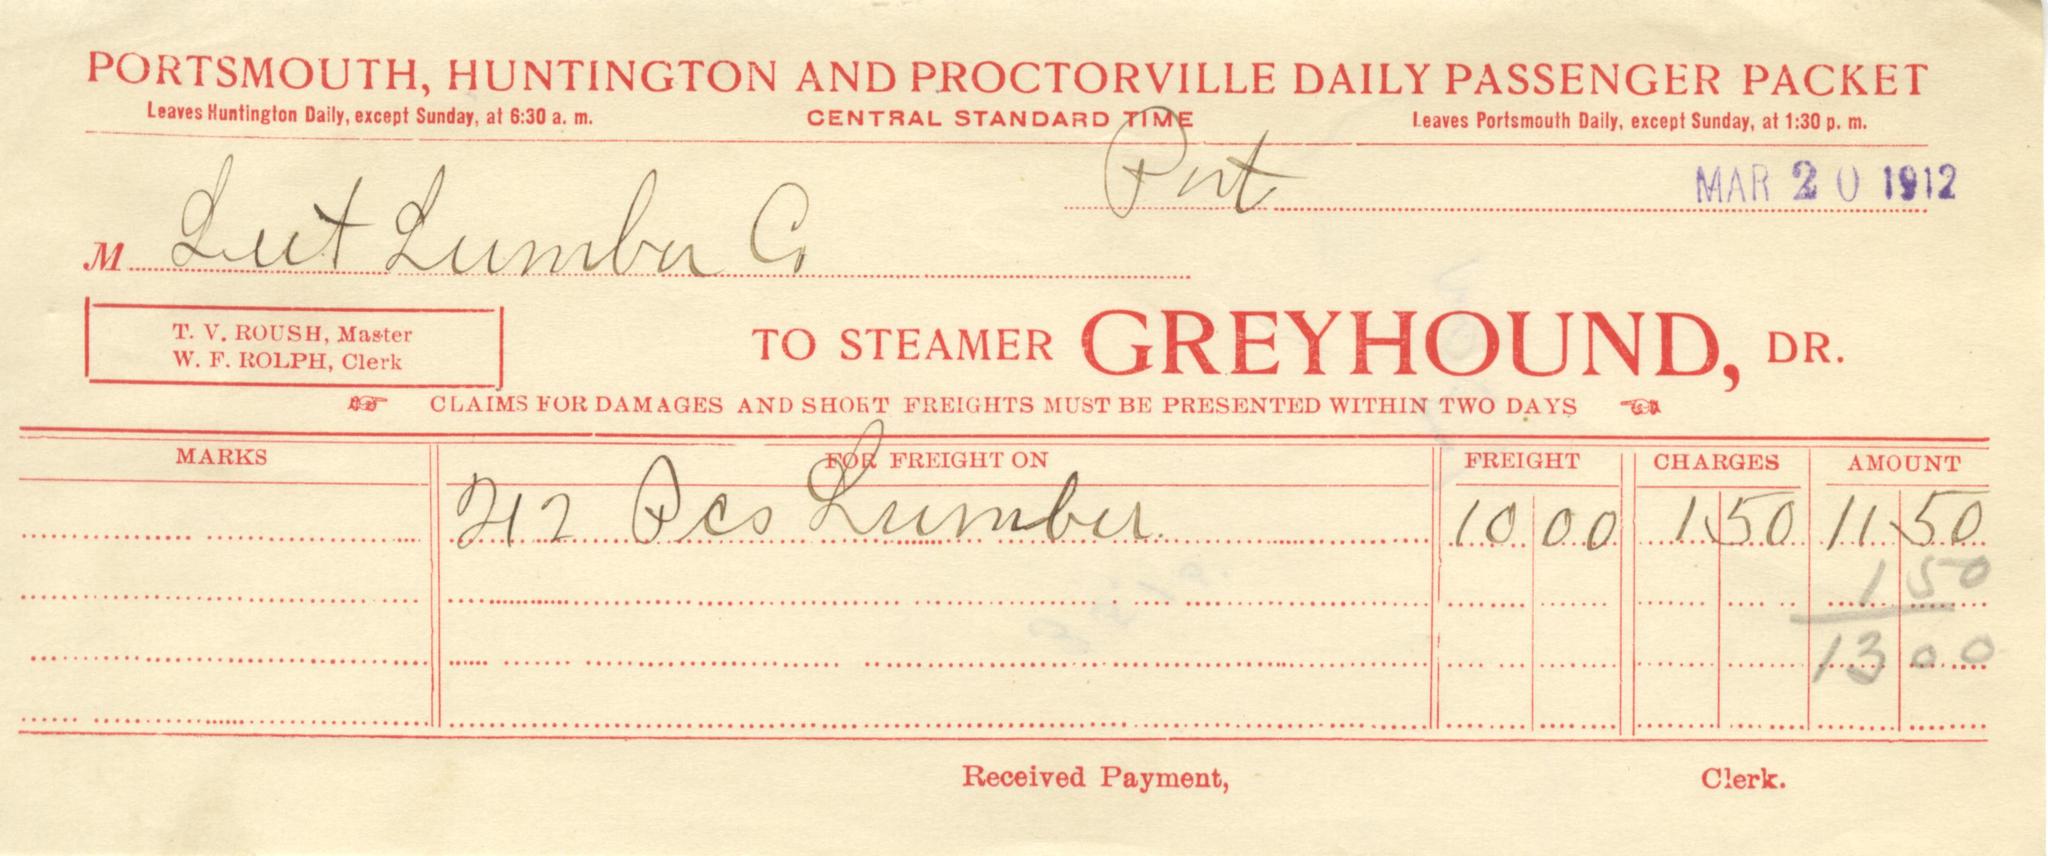 PORTSMOUTH, HUNTINGTON AND PROCTORVILLE DAILY PASSENGER PACKET
Leaves Huntington Daily, except Sunday, at 6:30 a. m. CENTRAL STANDARD TIME Leaves Portsmouth Daily, except Sunday, at 1:30 p. m.
Port MAR 20 1912
M Lumber Co
T. V. ROUSH, Master
W. F. ROLPH, Clerk
TO STEAMER GREYHOUND, DR.
CLAIMS FOR DAMAGES AND SHORT FREIGHTS MUST BE PRESENTED WITHIN TWO DAYS
MARKS FOR FREIGHT ON FREIGHT CHARGES AMOUNT
212 Pcs Lumber 10 00 1 50 11 50
1 50
13 00
Received Payment, Clerk.